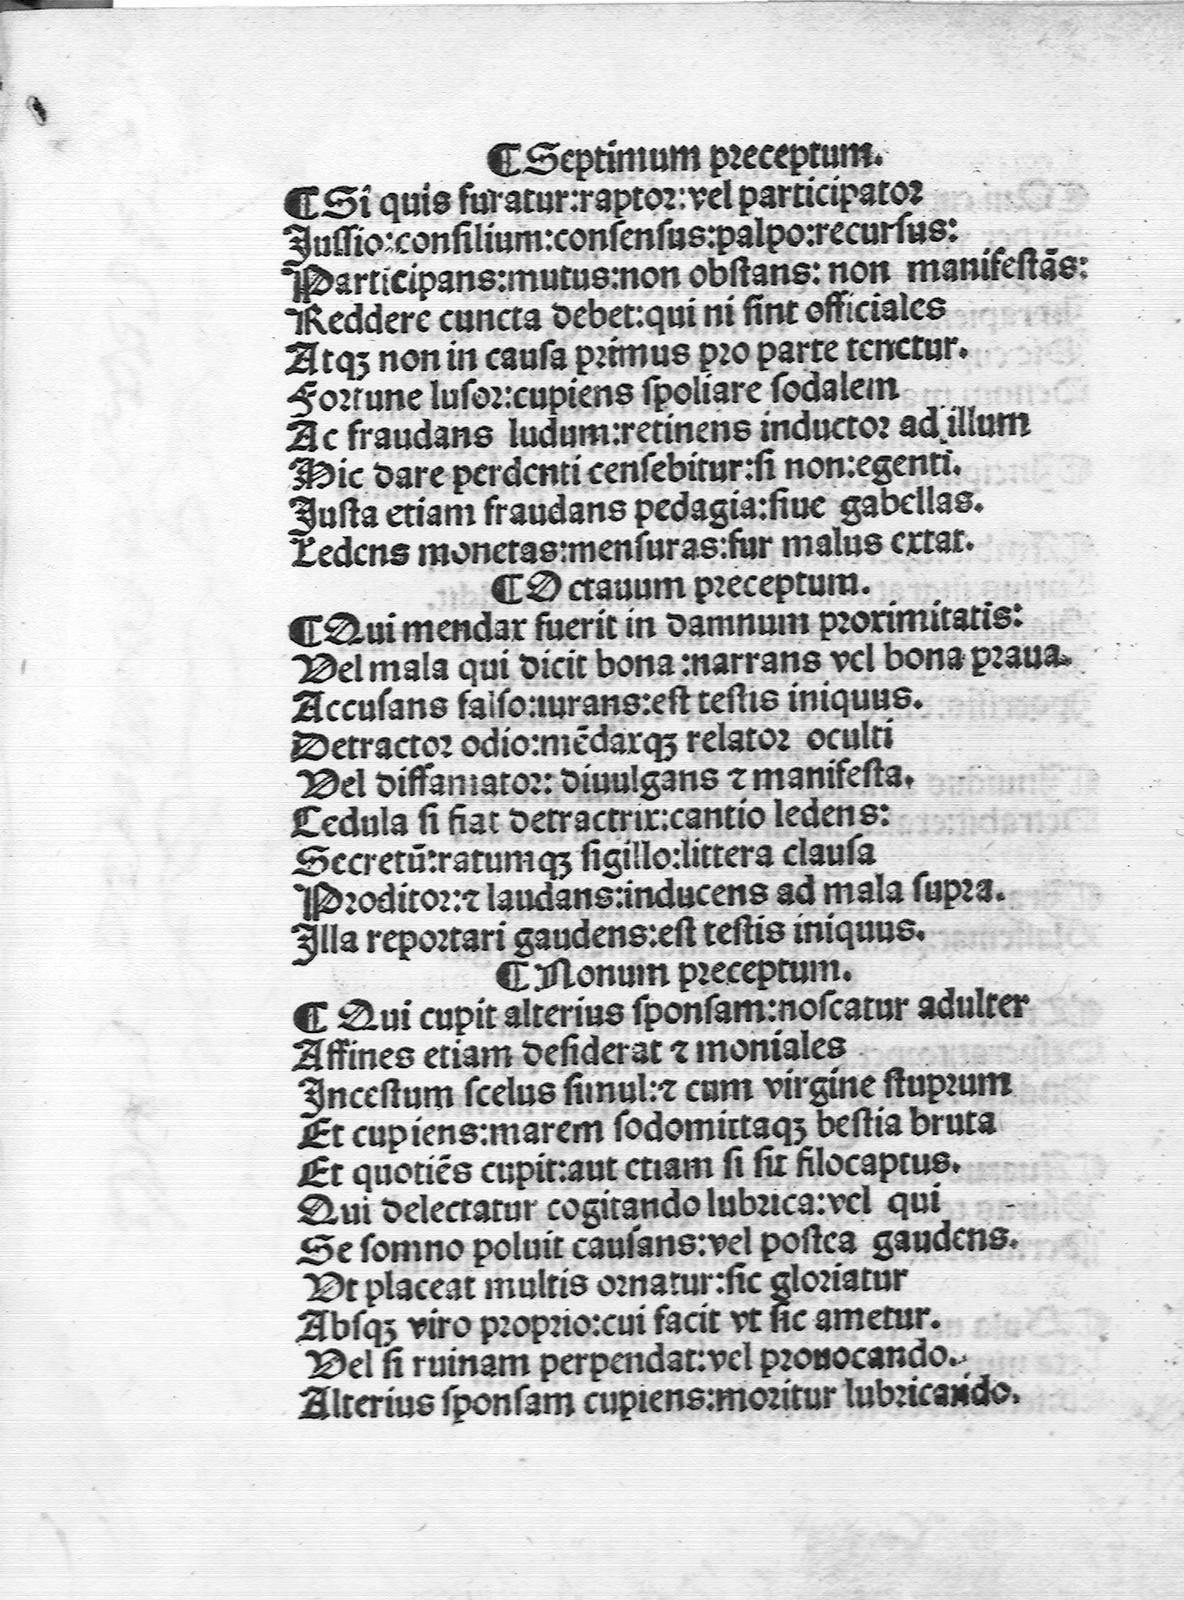 ¶ Septimum preceptum.
¶ Si quis furatur:raptor:vel participator
Jussio:consilium:consensus:palpo:recursus:
Participans:mutus:non obstans: non manifestãs:
Reddere cuncta debet:qui ni sint officiales
Atqꝫ non in causa primus pro parte tenetur.
Fortune lusor:cupiens spoliare sodalem
Ac fraudans ludum:retinens inductor ad illum
Hic dare perdenti censebitur:si non:egenti.
Justa etiam fraudans pedagia:siue gabellas.
Ledens monetas:mensuras:fur malus extat.
¶ Octauum preceptum.
¶ Qui mendax fuerit in damnum proximitatis:
Vel mala qui dicit bona:narrans vel bona praua.
Accusans falso:iurans:est testis iniquus.
Detractor odio:mẽdaxqꝫ relator oculti
Vel diffamator: diuulgans ⁊ manifesta.
Cedula si fiat detractrix:cantio ledens:
Secretũ:ratumqꝫ sigillo:littera clausa
Proditor:⁊ laudans:inducens ad mala supra.
Illa reportari gaudens:est testis iniquus.
¶ Nonum preceptum.
¶ Qui cupit alterius sponsam:noscatur adulter
Affines etiam desiderat ⁊ moniales
Incestum scelus simul:⁊ cum virgine stuprum
Et cupiens:marem sodomittaqꝫ bestia bruta
Et quotiẽs cupit:aut etiam si sit filocaptus.
Qui delectatur cogitando lubrica:vel qui
Se somno poluit causans:vel postea gaudens.
Vt placeat multis ornatur:sic gloriatur
Absqꝫ viro proprio:cui facit vt sic ametur.
Vel si ruinam perpendat:vel prouocando.
Alterius sponsam cupiens:moritur lubricando.